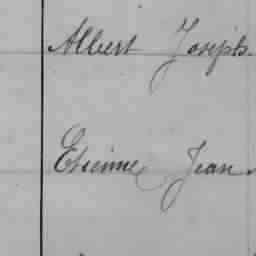 Albert Joseph
Etienne Jean